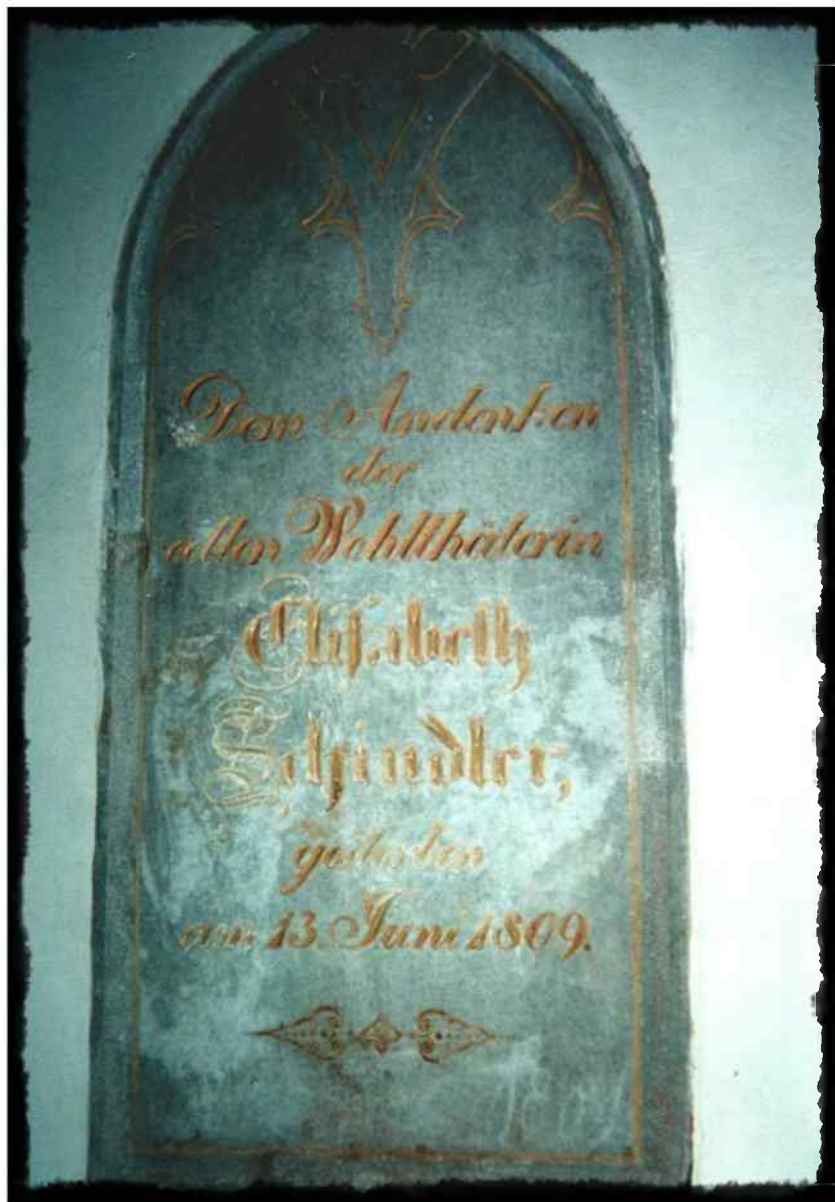 Dem Andenken
der
edlen Wohlthäterin
Elisabeth
Schindler,
gestorben
am 13. Juni 1809.